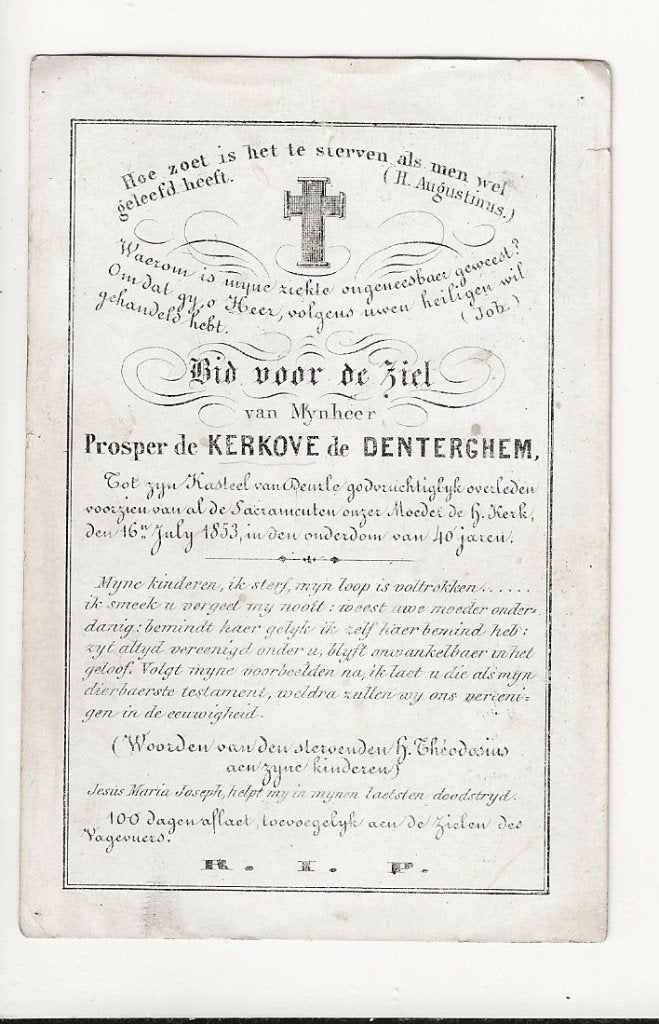 Hoe zoet is het te sterven als men wel
geleefd heeft.
(H. Augustinus.)
Waerom is myne ziekte ongeneesbaer geweest?
Om dat gy, o Heer, volgens uwen heiligen wil
gehandeld hebt.
(Job.)
Bid voor de Ziel
van Mynheer
Prosper de KERKOVE de DENTERGHEM,
Tot zyn Kasteel van Deurle godvruchtiglyk overleden
voorzien van al de Sacramenten onzer Moeder de H. Kerk,
den 16n July 1853, in den ouderdom van 40 jaren.
Myne kinderen, ik sterf, myn loop is voltrokken......
ik smeek u vergeet my nooit: weest uwe moeder onder-
danig: bemindt haer gelyk ik zelf haer bemind heb:
zyt altyd vereenigd onder u, blyft onwankelbaer in het
geloof. Volgt myne voorbeelden na, ik laet u die als myn
dierbaerste testament, weldra zullen wy ons vereeni-
gen in de eeuwigheid.
(Woorden van den stervenden H. Théodosius
aen zyne kinderen)
Jesus Maria Joseph, helpt my in mynen laetsten doodstryd.
100 dagen aflaet, toevoegelyk aen de zielen des
Vagevuers.
R. I. P.